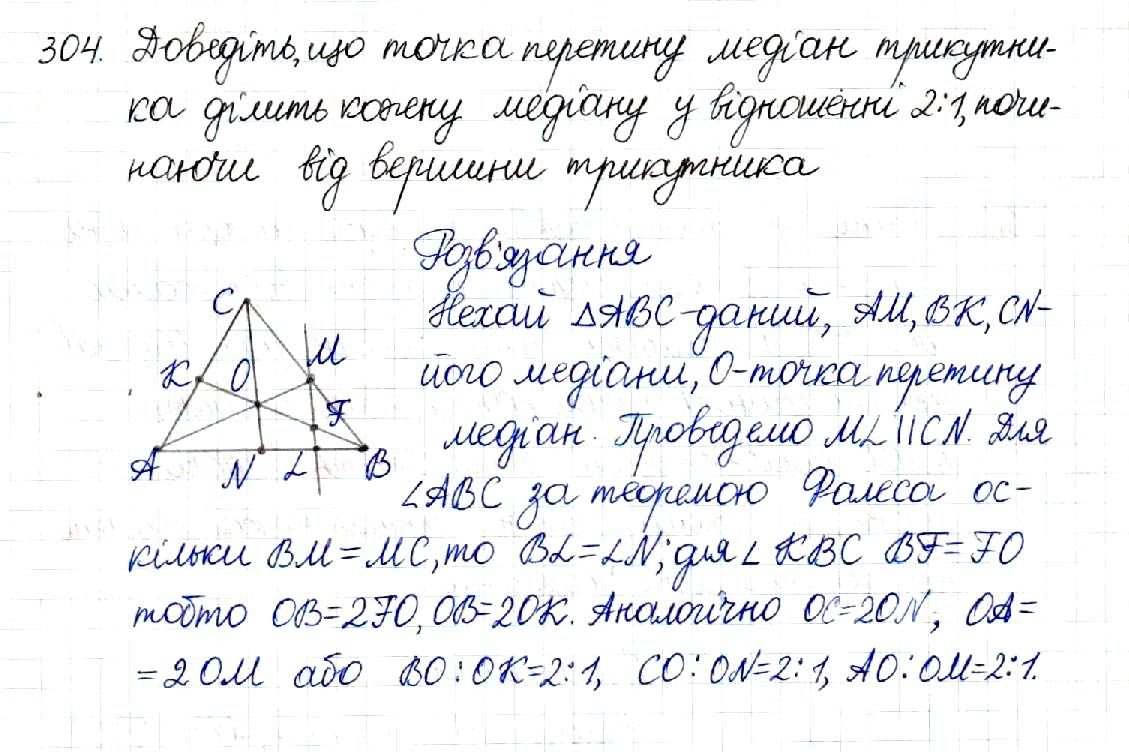 304. Доведіть, що точка перетину медіан трикутни-
ка ділить кожну медіану у відношенні 2:1, почи-
наючи від вершини трикутника
Розв'язання
Нехай △ABC - даний, AM, BK, CN-
його медіани, O - точка перетину
медіан. Проведемо ML || CN. Для
∠ABC за теоремою Фалеса ос-
кільки BM = MC, то BL = LN; для ∠KBC BF = FO
тобто OB = 2FO, OB = 2OK. Аналогічно OC = 2ON, OA =
= 2OM або BO : OK = 2:1, CO : ON = 2:1, AO : OM = 2:1.
C
M
K O
F
A N L B